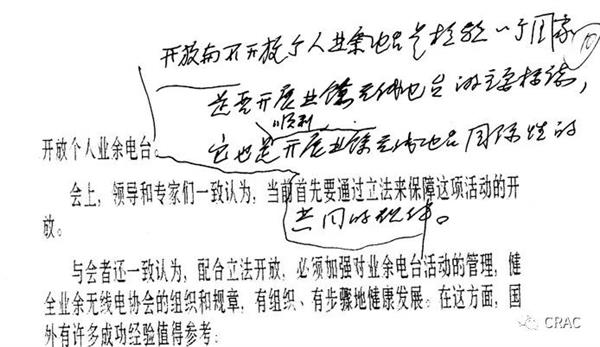 开放与不开放个人业余电台是检验一个国家
是否开展业余无线电台的主要标志，
顺利
它也是开展业余无线电台国际性的
共同的规律。
开放个人业余电台。
会上，领导和专家们一致认为，当前首先要通过立法来保障这项活动的开
放。
与会者还一致认为，配合立法开放，必须加强对业余电台活动的管理，健
全业余无线电协会的组织和规章，有组织、有步骤地健康发展。在这方面，国
外有许多成功经验值得参考：
CRAC